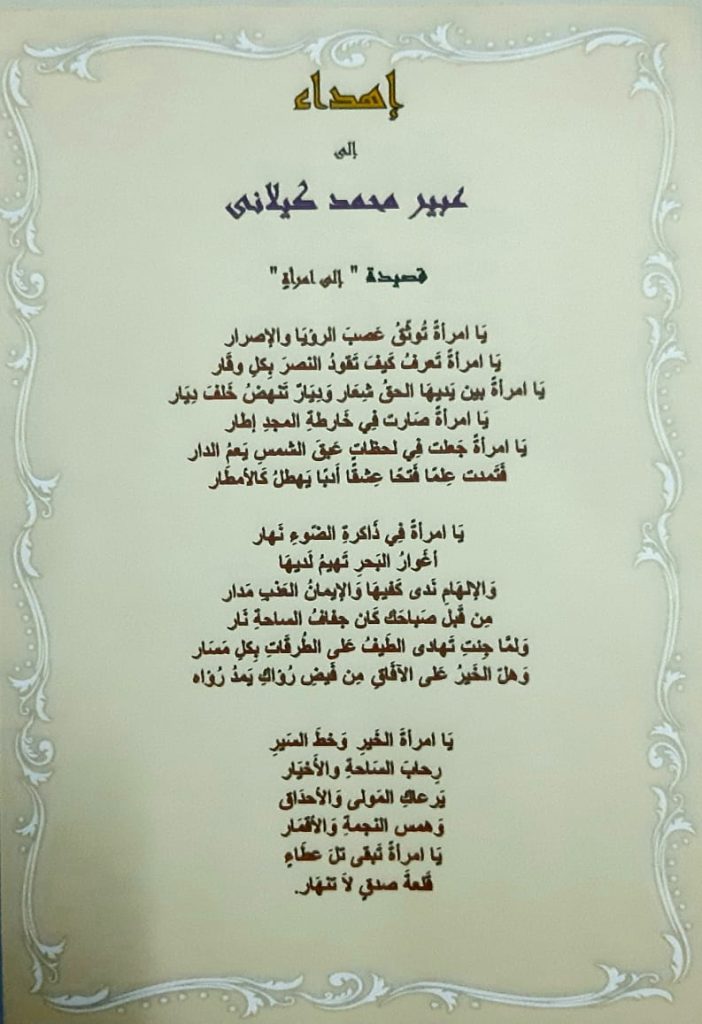 إهداء
إلى
عبير محمد كيلانى
قصيدة " إلى امرأةٍ "
يَا امرأةً تُوثِّقُ عَصبَ الرؤيَا والإصرار
يَا امرأةً تَعرفُ كَيفَ تَقودُ النصرَ بِكلِ وقَار
يَا امرأةً بين يَديهَا الحقُ شِعَار وَدِيَارٌ تَنهضُ خَلفَ دِيَار
يَا امرأةً صَارت فِي خَارطةِ المجدِ إطار
يَا امرأةً جَعلت فِي لحظاتٍ عَبقَ الشمسِ يَعمُ الدار
فَتَمدت عِلمًا فَتحًا عِشقًا أدبًا يَهطلُ كَالأمطَار
يَا امرأةً فِي ذَاكرةِ الضَوءِ نَهار
أغوارُ البَحرِ تَهيمُ لَديهَا
وَالإلهَامِ نَدى كَفيهَا وَالإيمانُ العَذبِ مَدار
مِن قَبل صَباحَكِ كَان جفافُ الساحةِ نَار
وَلمَّا جِئتِ تَهادى الطَيفُ عَلى الطُرقَاتِ بِكلِ مَسَار
وَهلّ الخَيرُ عَلى الآفَاقِ مِن فَيضِ رُؤاكِ يَمدُ رُؤاه
يَا امرأةَ الخَيرِ وَخطَ السَيرِ
رِحابَ السَاحةِ والأَخيَار
يَرعاكِ المَولى وَالأحدَاق
وَهمس النجمةِ وَالأقمَار
يَا امرأةً تَبقى تَلَ عطَاءٍ
قَلعةَ صدقٍ لاَ تَنهَار.